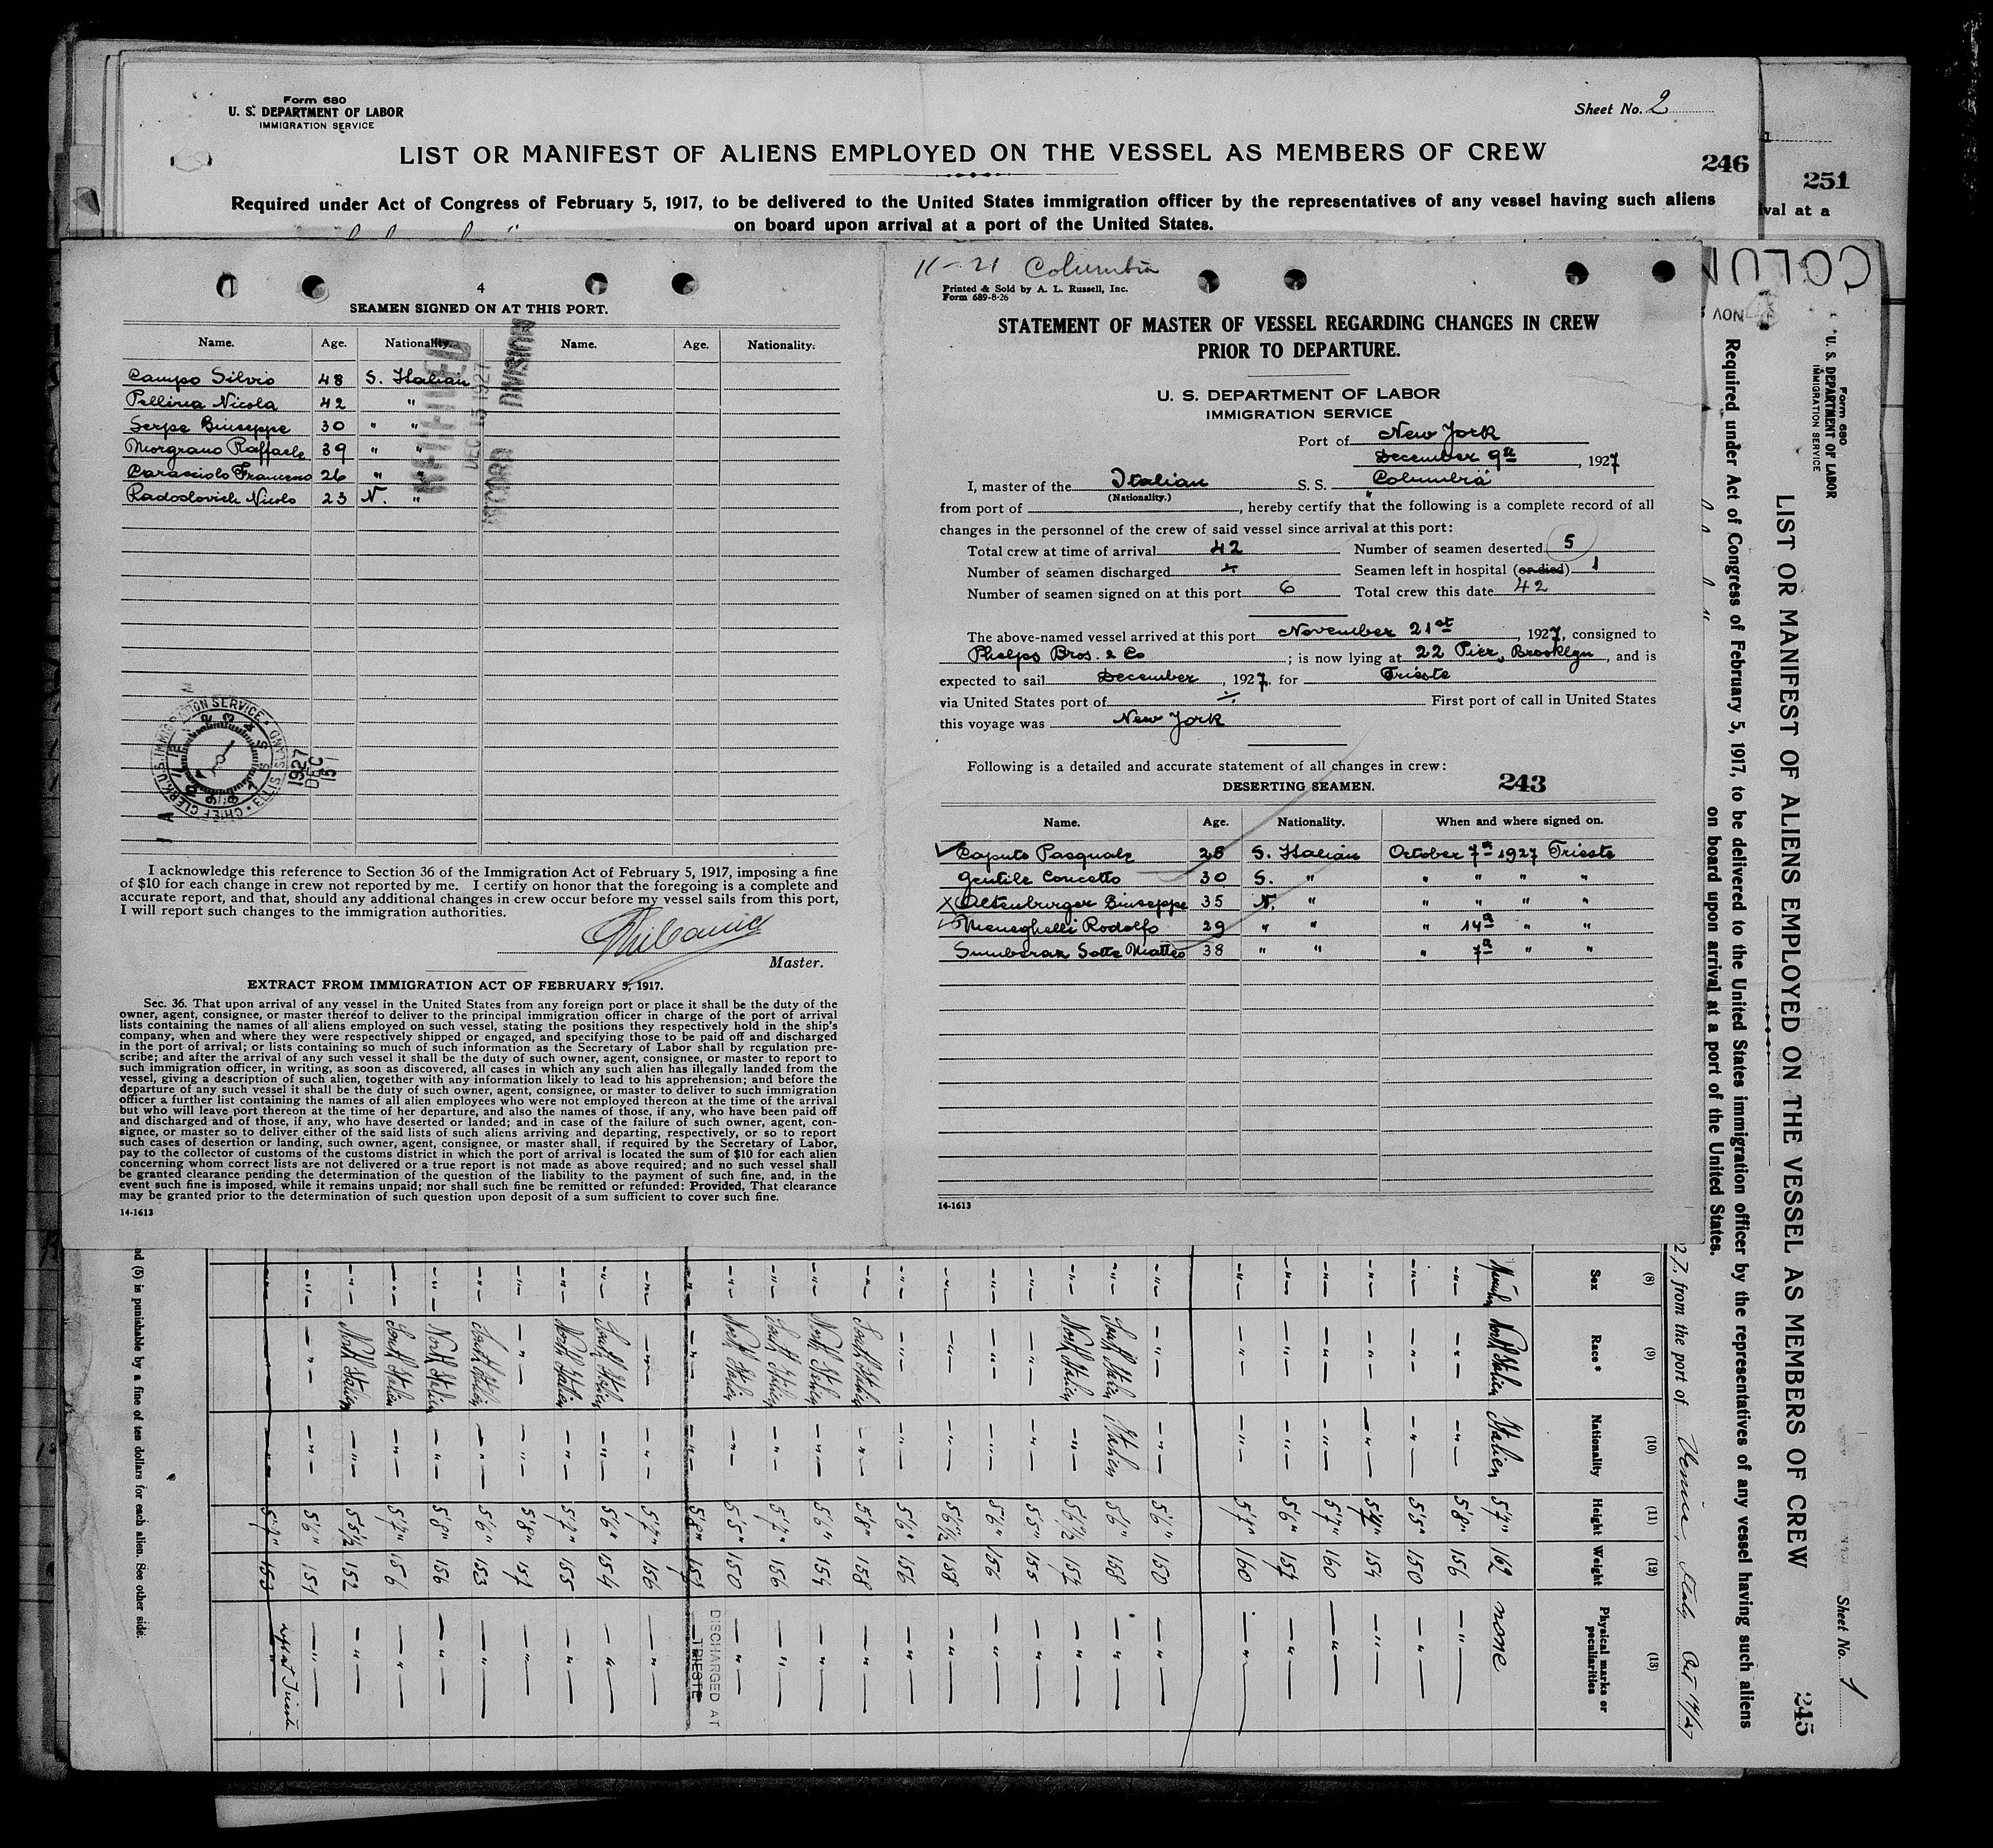 Form 680
U. S. DEPARTMENT OF LABOR
IMMIGRATION SERVICE
Sheet No. 2
LIST OR MANIFEST OF ALIENS EMPLOYED ON THE VESSEL AS MEMBERS OF CREW
246
251
Required under Act of Congress of February 5, 1917, to be delivered to the United States immigration officer by the representatives of any vessel having such aliens
on board upon arrival at a port of the United States.
val at a
4
SEAMEN SIGNED ON AT THIS PORT.
Name. Age. Nationality. Name. Age. Nationality.
Campo Silvio 48 S. Italian
Pellina Nicola 42 "
Serpe Giuseppe 30 " "
Morgrano Raffaele 39 " "
Caracciolo Francesco 26 "
Radoslovich Nicolo 23 N. "
DEC 15 1927
RECORD DIVISION
CHIEF CLERK U.S. IMMIGRATION SERVICE · ELLIS ISLAND
1927 DEC 15
I acknowledge this reference to Section 36 of the Immigration Act of February 5, 1917, imposing a fine
of $10 for each change in crew not reported by me. I certify on honor that the foregoing is a complete and
accurate report, and that, should any additional changes in crew occur before my vessel sails from this port,
I will report such changes to the immigration authorities.
Master.
EXTRACT FROM IMMIGRATION ACT OF FEBRUARY 5, 1917.
Sec. 36. That upon arrival of any vessel in the United States from any foreign port or place it shall be the duty of the
owner, agent, consignee, or master thereof to deliver to the principal immigration officer in charge of the port of arrival
lists containing the names of all aliens employed on such vessel, stating the positions they respectively hold in the ship's
company, when and where they were respectively shipped or engaged, and specifying those to be paid off and discharged
in the port of arrival; or lists containing so much of such information as the Secretary of Labor shall by regulation pre-
scribe; and after the arrival of any such vessel it shall be the duty of such owner, agent, consignee, or master to report to
such immigration officer, in writing, as soon as discovered, all cases in which any such alien has illegally landed from the
vessel, giving a description of such alien, together with any information likely to lead to his apprehension; and before the
departure of any such vessel it shall be the duty of such owner, agent, consignee, or master to deliver to such immigration
officer a further list containing the names of all alien employees who were not employed thereon at the time of the arrival
but who will leave port thereon at the time of her departure, and also the names of those, if any, who have been paid off
and discharged and of those, if any, who have deserted or landed; and in case of the failure of such owner, agent, con-
signee, or master so to deliver either of the said lists of such aliens arriving and departing, respectively, or so to report
such cases of desertion or landing, such owner, agent, consignee, or master shall, if required by the Secretary of Labor,
pay to the collector of customs of the customs district in which the port of arrival is located the sum of $10 for each alien
concerning whom correct lists are not delivered or a true report is not made as above required; and no such vessel shall
be granted clearance pending the determination of the question of the liability to the payment of such fine, and, in the
event such fine is imposed, while it remains unpaid; nor shall such fine be remitted or refunded: Provided, That clearance
may be granted prior to the determination of such question upon deposit of a sum sufficient to cover such fine.
14-1613
11-21 Columbia
Printed & Sold by A. L. Russell, Inc.
Form 689-8-26
STATEMENT OF MASTER OF VESSEL REGARDING CHANGES IN CREW
PRIOR TO DEPARTURE.
U. S. DEPARTMENT OF LABOR
IMMIGRATION SERVICE
Port of New York
December 9th, 1927
I, master of the Italian S. S. "Columbia"
(Nationality.)
from port of , hereby certify that the following is a complete record of all
changes in the personnel of the crew of said vessel since arrival at this port:
Total crew at time of arrival 42 Number of seamen deserted 5
Number of seamen discharged ÷ Seamen left in hospital (or died) 1
Number of seamen signed on at this port 6 Total crew this date 42
The above-named vessel arrived at this port November 21st, 1927, consigned to
Phelps Bros. & Co ; is now lying at 22 Pier, Brooklyn, and is
expected to sail December, 1927, for Trieste
via United States port of ÷ First port of call in United States
this voyage was New York
Following is a detailed and accurate statement of all changes in crew:
DESERTING SEAMEN. 243
Name. Age. Nationality. When and where signed on.
Caputo Pasquale 26 S. Italian October 7th 1927 Trieste
Gentile Concetto 30 S. " " " " "
Altenburger Giuseppe 35 N. " " " " "
Meneghelli Rodolfo 29 " " " 14th " "
Sumberaz Sotte Matteo 38 " " " 7th " "
14-1613
COLUM
NOV
Form 680
U. S. DEPARTMENT OF LABOR
IMMIGRATION SERVICE
LIST OR MANIFEST OF ALIENS EMPLOYED ON THE VESSEL AS MEMBERS OF CREW
Sheet No. 1
245
Required under Act of Congress of February 5, 1917, to be delivered to the United States immigration officer by the representatives of any vessel having such aliens
on board upon arrival at a port of the United States.
27, from the port of Venice, Italy Oct 14/27
(8) (9) (10) (11) (12) (13)
Sex Race* Nationality Height Weight Physical marks or peculiarities
North Italien Italien 5'7" 162 none
—"— —"— —"— 5'8" 156 —"—
—"— —"— —"— 5'5" 150 —"—
—"— —"— —"— 154 —"—
—"— —"— —"— 5'7" 160 —"—
—"— —"— —"— 5'6" 157 —"—
—"— —"— —"— 5'7" 160 —"—
—"— —"— —"— 5'6" 150 —"—
—"— South Italien Italien 5'6" 158 —"—
—"— North Italien —"— 5'6½ 157 —"—
—"— —"— —"— 5'5" 155 —"—
—"— —"— —"— 5'6" 156 —"—
—"— —"— —"— 5'6½ 158 —"—
—"— —"— —"— 5'6" 156 —"—
—"— South Italien —"— 5'8" 158 —"—
—"— North Italien —"— 5'6" 154 —"—
—"— South Italien —"— 5'7" 156 —"—
—"— North Italien —"— 5'5" 150 —"—
DISCHARGED AT TRIESTE
—"— —"— —"— 5'8" 159
—"— —"— —"— 5'7" 156 —"—
—"— South Italien —"— 5'6" 154 —"—
—"— North Italien —"— 5'7" 155 —"—
—"— —"— —"— 5'8" 157 —"—
—"— South Italien —"— 5'6" 153 —"—
—"— North Italien —"— 5'8" 156 —"—
—"— South Italien —"— 5'7" 156 —"—
—"— North Italien —"— 5'5½ 152 —"—
—"— —"— —"— 5'6" 151 —"—
left at Trieste
—"— —"— —"— 5'7" 153 —"—
nd (5) is punishable by a fine of ten dollars for each alien. See other side.